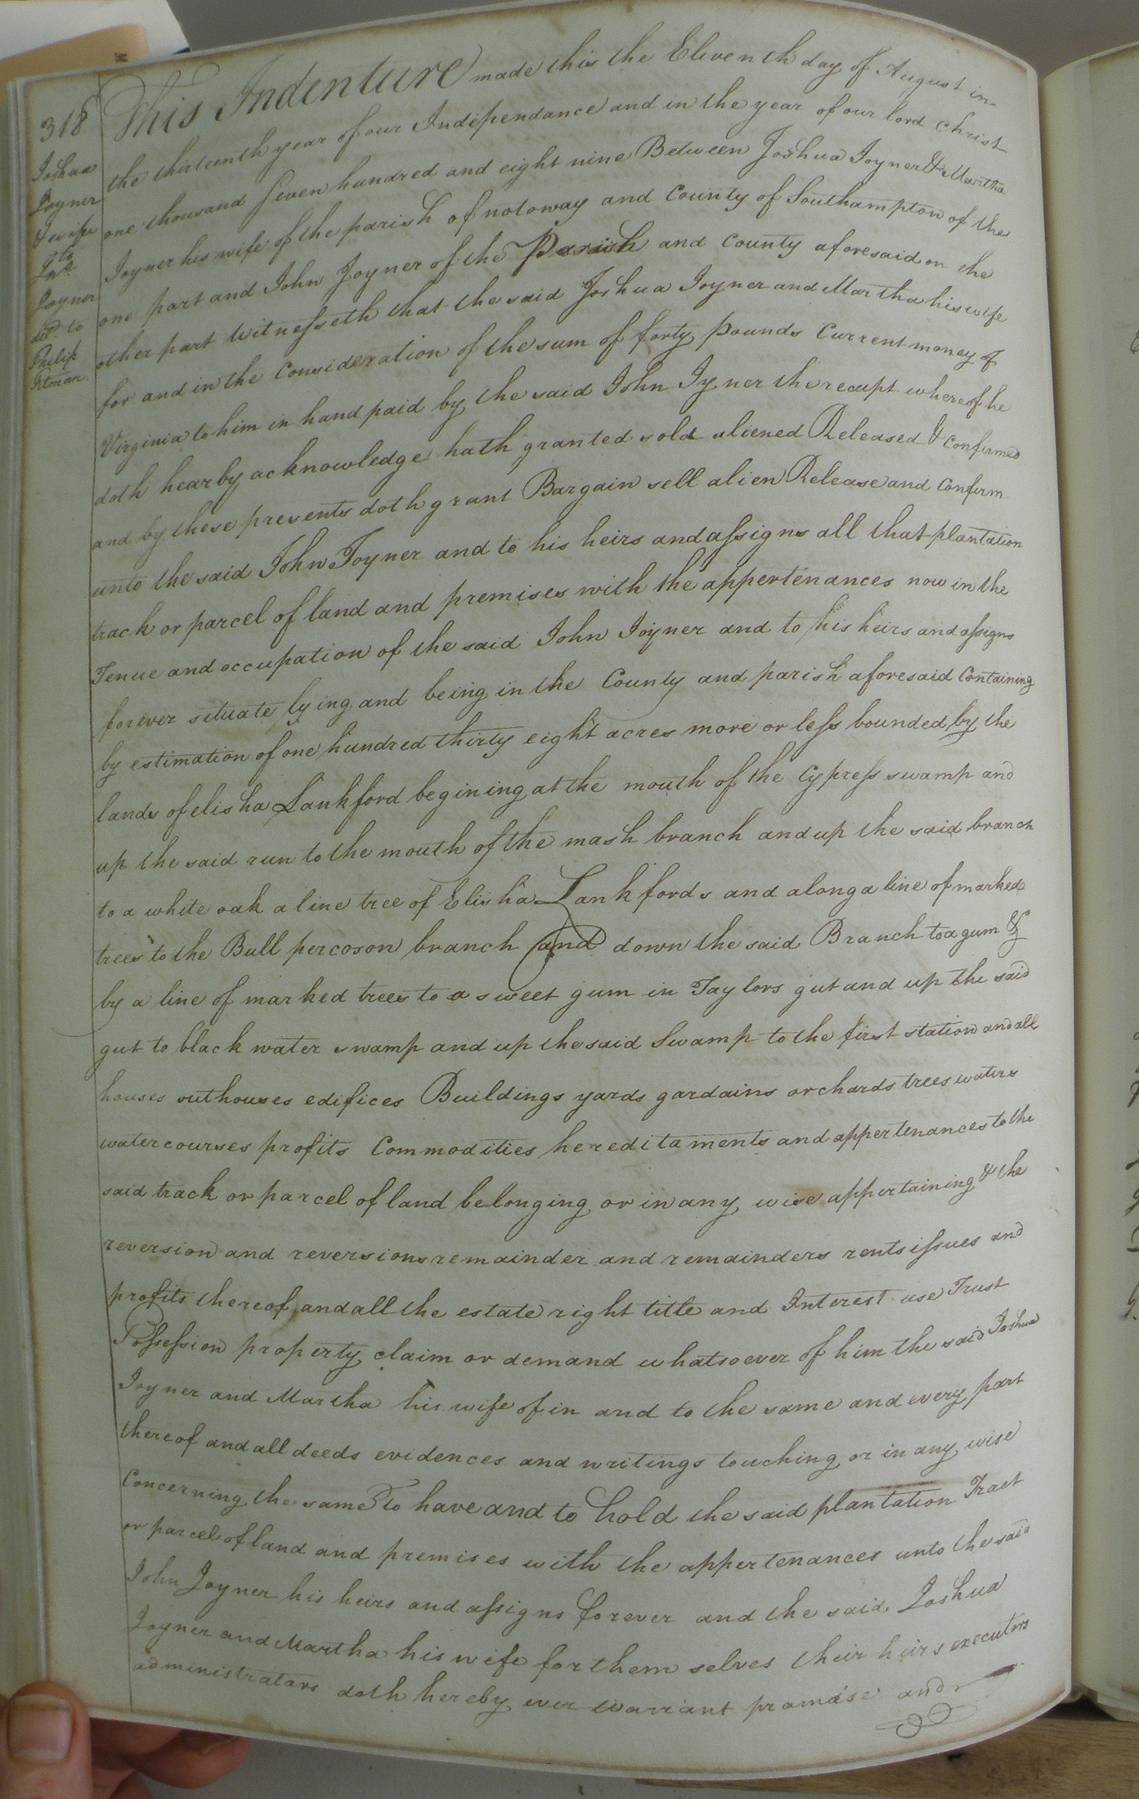 318
Joshua
Joyner
& wife
to
Jno.
Joyner
ded. to
Philip
Pitman.
This Indenture made this the Eleventh day of August in
the thirteenth year of our Independance and in the year of our lord Christ
one thousand seven hundred and eight nine Between Joshua Joyner & Martha
Joyner his wife of the parish of notoway and County of Southampton of the
one part and John Joyner of the Parish and County aforesaid on the
other part Witnesseth that the said Joshua Joyner and Martha his wife
for and in the Consideration of the sum of forty pounds Current money of
Virginia to him in hand paid by the said John Jyner the receipt whereof he
doth hearby acknowledge hath granted sold aliened Released & Confirmed
and by these presents doth grant Bargain sell alien Release and Confirm
unto the said John Joyner and to his heirs and assigns all that plantation
track or parcel of land and premises with the appertenances now in the
Tenue and occupation of the said John Joyner and to his heirs and assigns
forever situate lying and being in the County and parish aforesaid Containing
by estimation of one hundred thirty eight acres more or less bounded by the
lands of elisha Lankford begining at the mouth of the Cypress swamp and
up the said run to the mouth of the mash branch and up the said branch
to a white oak a line tree of Elisha Lankfords and along a line of marked
trees to the Bull percoson branch and down the said Branch to a gum &
by a line of marked trees to a sweet gum in Taylors gut and up the said
gut to black water swamp and up the said Swamp to the first station and all
houses outhouses edifices Buildings yards gardains orchards trees waters
watercourses profits Commodities hereditaments and appertenances to the
said track or parcel of land belonging or in any wise appertaining & the
reversion and reversions remainder and remainders rents issues and
profits thereof and all the estate right title and Interest use Trust
Possession property claim or demand whatsoever of him the said Joshua
Joyner and Martha his wife of in and to the same and every part
thereof and all deeds evidences and writings touching or in any wise
Concerning the same To have and to hold the said plantation Tract
or parcel of land and premises with the appertenances unto the said
John Joyner his heirs and assigns forever and the said Joshua
Joyner and Martha his wife for them selves their heirs executors
administrators doth hereby ever warrant promise and